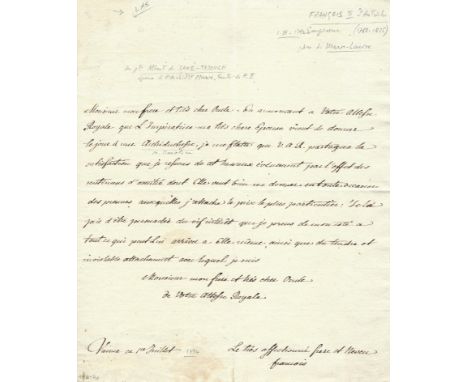 L.A.S.
FRANÇOIS II D'AUTRICHE
(1768-1835)
père de Marie-Louise
au pce Albert de SAXE-TESCHEN
époux de Marie
Monsieur mon frere et très cher Oncle. En annonçant a Votre Altesse
Royale que L'Impératrice ma très chere Epouse vient de donner
le jour à une Archiduchesse, je me flatte que V. A. R. partagera la
satisfaction que je resens de cet heureux événement par l'effet des
sentimens d'amitié dont Elle veut bien me donner en toute occasion
des preuves auxquelles j'attache le prix le plus particulier. Je La
prie d'être persuadée du vif intérêt que je prens de mon coté a
tout ce qui peut Lui arriver a Elle-même, ainsi que du tendre et
inviolable attachement avec lequel je suis
Monsieur mon frere et très cher Oncle
de Votre Altesse Royale.
Vienne ce 1er Juillet
Le très affectionné frere et Neveu
françois